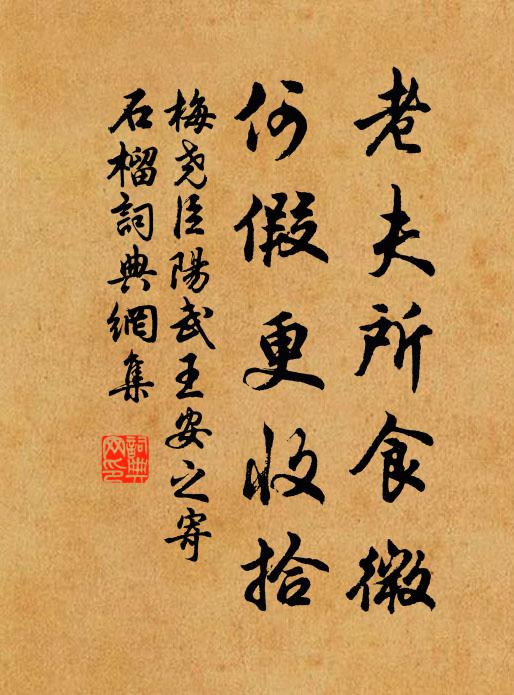 老夫所食微
何假更收拾
梅堯臣陽武王安之寄
石榴詞典網集
詞典
网印